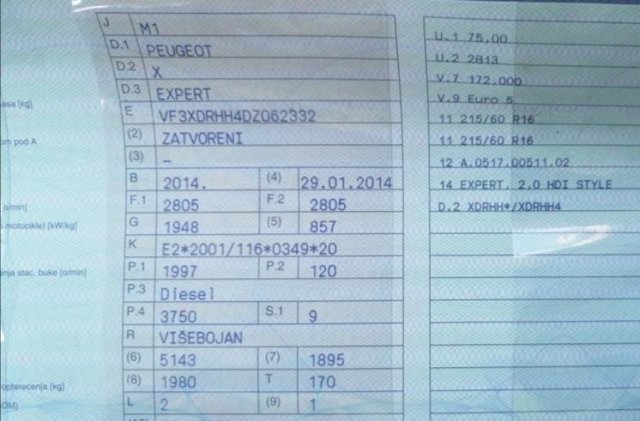 J M1
D.1 PEUGEOT
D.2 X
D.3 EXPERT
E VF3XDRHH4DZ062332
(2) ZATVORENI
(3) –
B 2014. (4) 29.01.2014
F.1 2805 F.2 2805
G 1948 (5) 857
K E2*2001/116*0349*20
P.1 1997 P.2 120
P.3 Diesel
P.4 3750 S.1 9
R VIŠEBOJAN
(6) 5143 (7) 1895
(8) 1980 T 170
L 2 (9) 1
asa [kg]
om pod A
o/min]
motocikle) [kW/kg]
nja stac. buke [o/min]
opterećenja [kg]
U.1 75,00
U.2 2813
V.7 172,000
V.9 Euro 5
11 215/60 R16
11 215/60 R16
12 A.0517.00511.02
14 EXPERT. 2,0 HDI STYLE
D.2 XDRHH*/XDRHH4